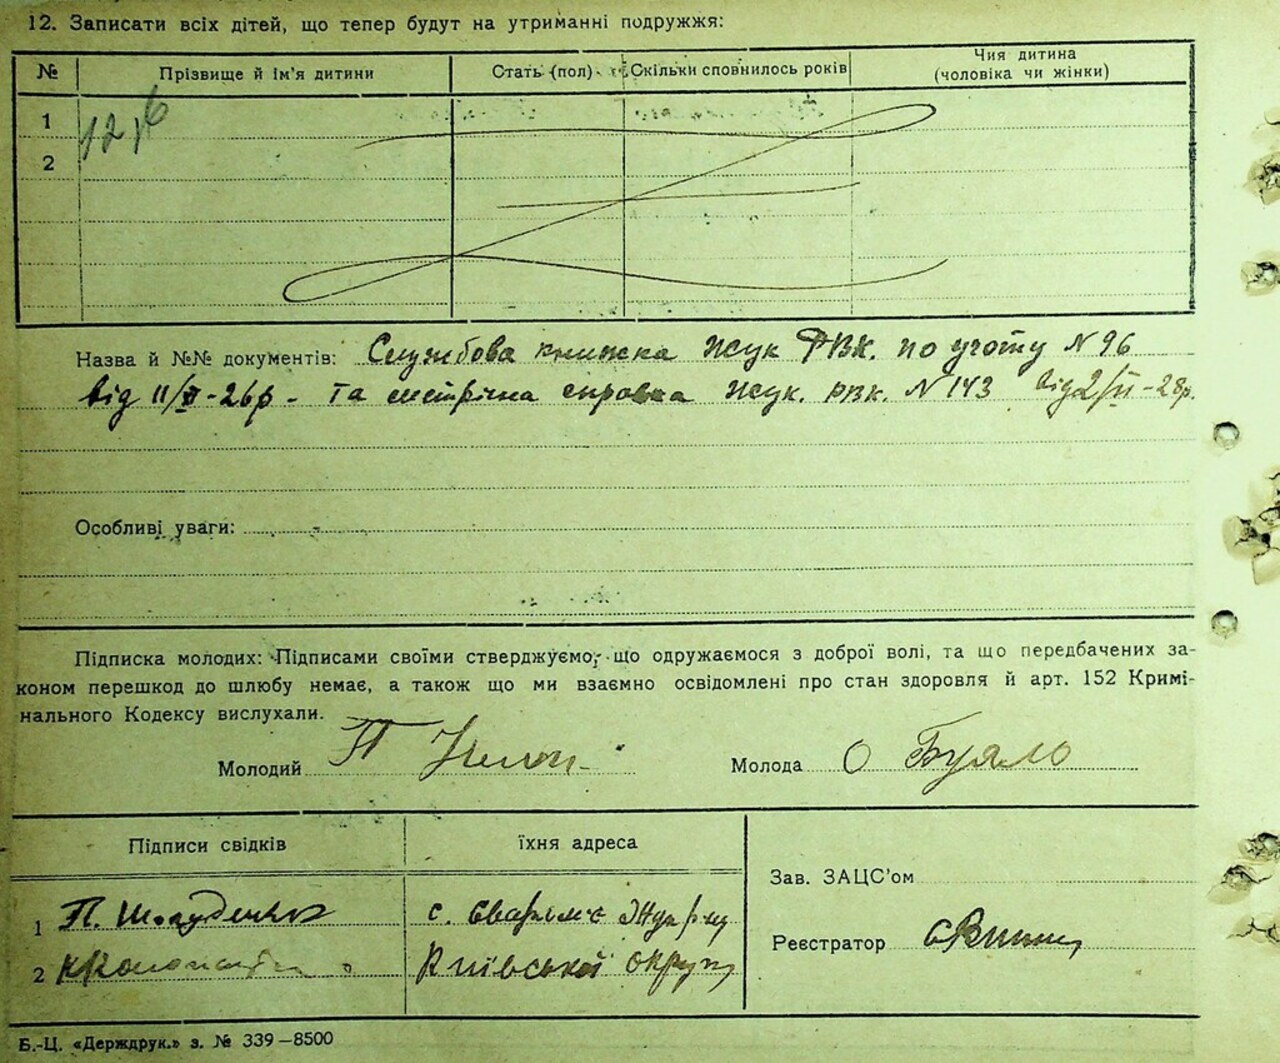 12. Записати всіх дітей, що тепер будут на утриманні подружжя:
№ Прізвище й ім'я дитини Стать (пол) Скільки сповнилось років Чия дитина (чоловіка чи жінки)
1
2
Назва й №№ документів: Службова книжка Жук РВК. по учоту N 96
від 11/ -26р - та метрична справка Жук. РВК. N 143 від 2/II-28р.
Особливі уваги:
Підписка молодих: Підписами своїми стверджуємо, що одружаємося з доброї волі, та що передбачених за-
коном перешкод до шлюбу немає, а також що ми взаємно освідомлені про стан здоровля й арт. 152 Кримі-
нального Кодексу вислухали.
Молодий П Молода О Буяло
Підписи свідків їхня адреса
Зав. ЗАЦС'ом
1 П. с.
Реєстратор
2 Київської округи
Б.-Ц. «Держдрук.» з. № 339—8500